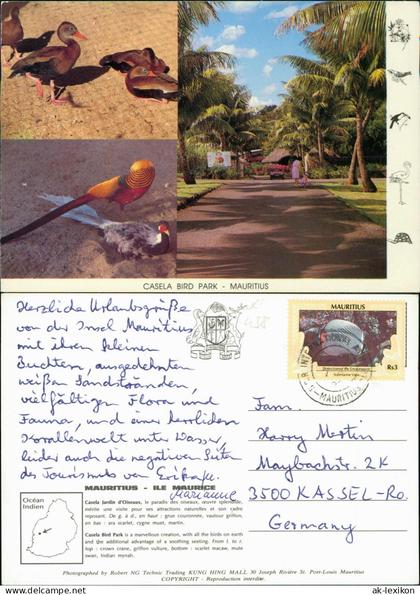 CASELA BIRD PARK - MAURITIUS
Herzliche Urlaubsgrüße
von der Insel Mauritius
mit ihren kleinen
Buchten, ausgedehnten
weißen Sandstranden,
vielfältigen Flora und
Fauna, und einer herrlichen
Korallenwelt unter Wasser,
leider auch die negativen Seiten
des Tourismus von
Marianne
MAURITIUS
Rs3
MAURITIUS
Fam.
Harry Mertin
Maybachstr. 2K
3500 KASSEL-Ro.
Germany
MAURITIUS - ILE MAURICE
Océan
Indien
Casela Jardin d'Oiseaux, le paradis des oiseaux, œuvre splendide,
mérite une visite pour ses attractions naturelles et son cadre
reposant. De g. à d., en haut : grue couronnée, vautour griffon,
en bas : ara scarlet, cygne muet, martin.
Casela Bird Park is a marvellous creation, with all the birds on earth
and the additional advantage of a soothing setting. From l. to r.
top : crown crane, griffon vulture, bottom : scarlet macaw, mute
swan, Indian mynah.
Photographed by Robert NG Technic Trading KUNG HING MALL 30 Joseph Rivière St. Port-Louis Mauritius
COPYRIGHT - Reproduction interdite.
www.ansichtskarten-lexikon.de
© ak-lexikon.com